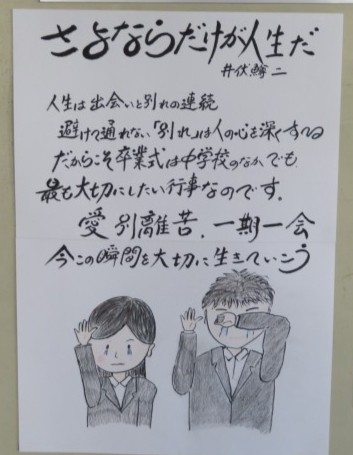 さよならだけが人生だ
井伏鱒二
人生は出会いと別れの連続
避けて通れない「別れ」は人の心を深くする
だからこそ卒業式は中学校のなかでも
最も大切にしたい行事なのです。
愛別離苦、一期一会
今この瞬間を大切に生きていこう